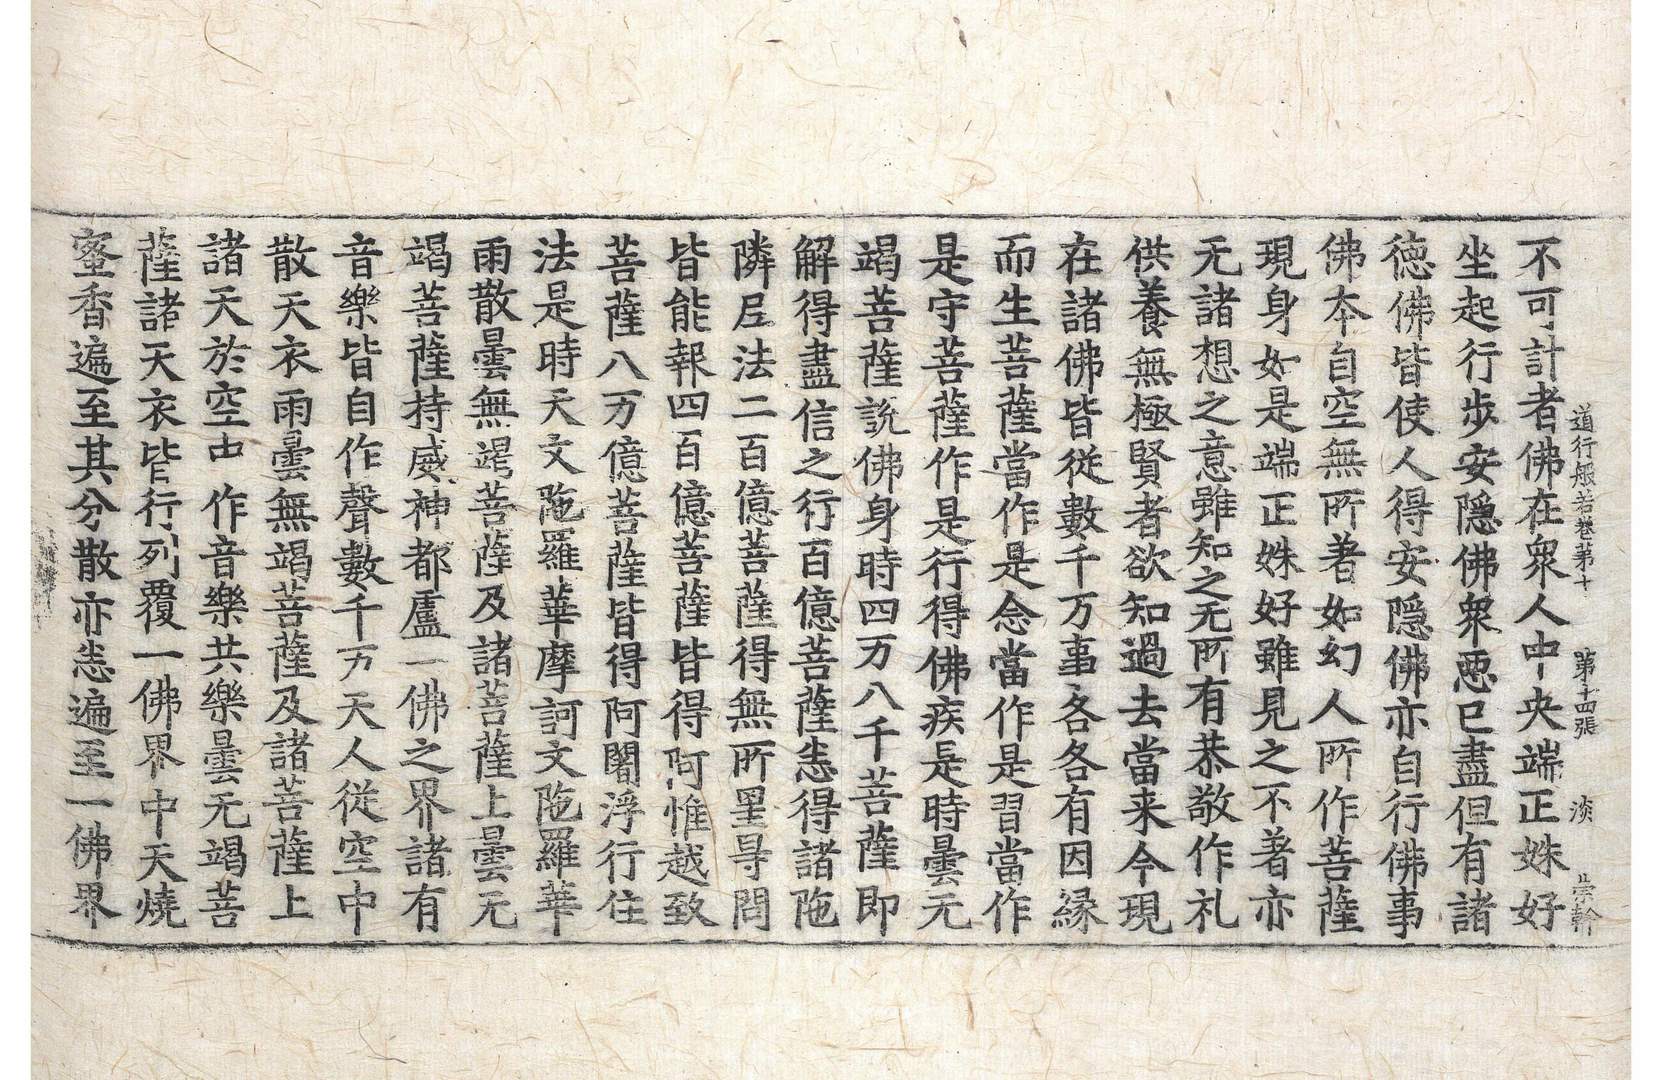 道行般若卷第十 第十四張 淡 崇幹
不可計者佛在衆人中央端正姝好
坐起行步安隱佛衆惡已盡但有諸
德佛皆使人得安隱佛亦自行佛事
佛本自空無所著如幻人所作菩薩
現身如是端正姝好雖見之不著亦
无諸想之意雖知之无所有恭敬作礼
供養無極賢者欲知過去當来今現
在諸佛皆從數千万事各各有因緣
而生菩薩當作是念當作是習當作
是守菩薩作是行得佛疾是時曇无
竭菩薩說佛身時四万八千菩薩即
解得盡信之行百億菩薩悉得諸陁
隣尼法二百億菩薩得無所罣㝵問
皆能報四百億菩薩皆得阿惟越致
菩薩八万億菩薩皆得阿闍浮行住
法是時天文陁羅華摩訶文陁羅華
雨散曇無竭菩薩及諸菩薩上曇无
竭菩薩持威神都盧一佛之界諸有
音樂皆自作聲數千万天人從空中
散天衣雨曇無竭菩薩及諸菩薩上
諸天於空中作音樂共樂曇无竭菩
薩諸天衣皆行列覆一佛界中天燒
蜜香遍至其分散亦悉遍至一佛界